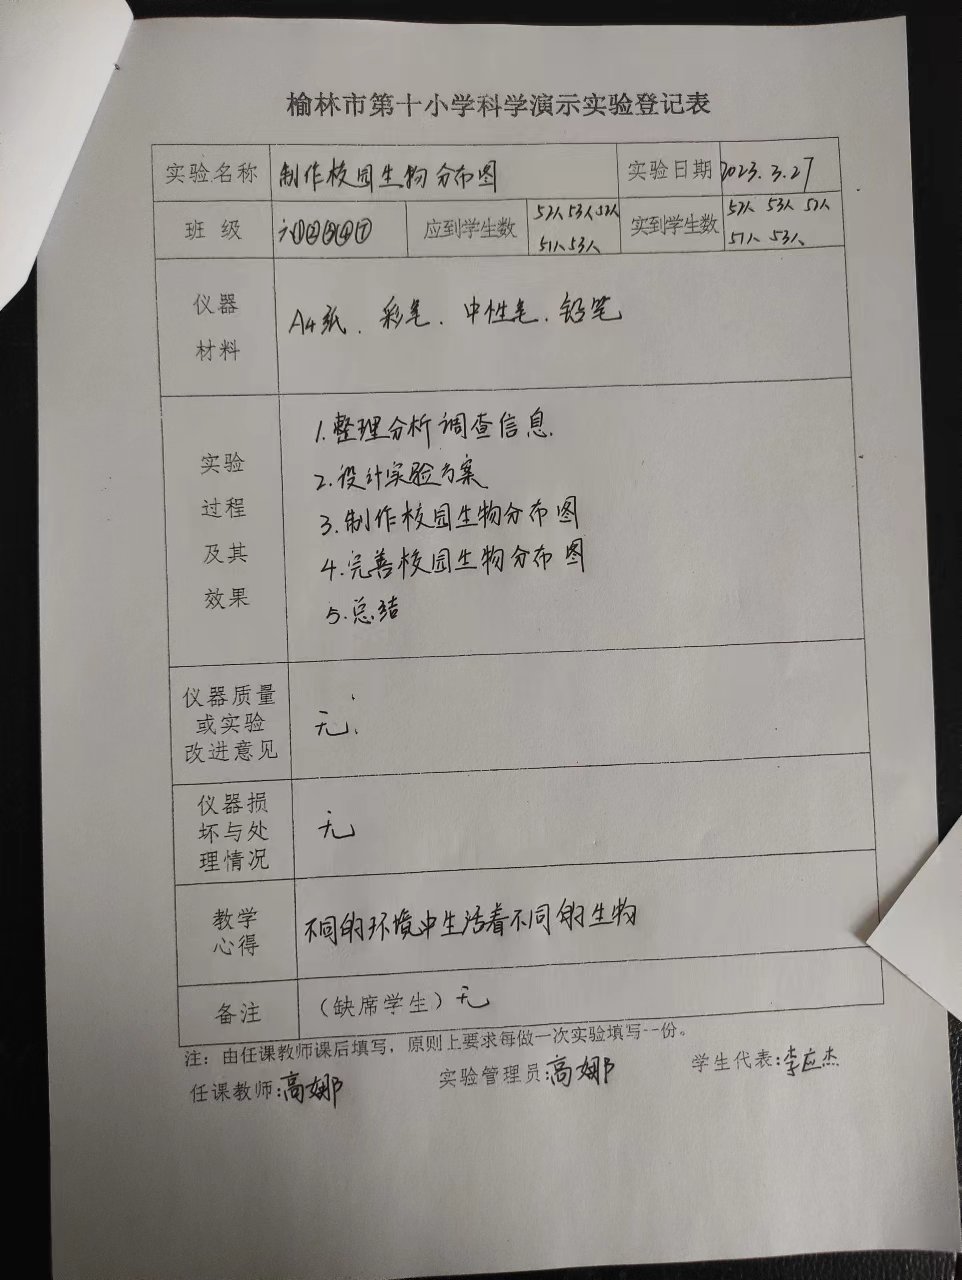 榆林市第十小学科学演示实验登记表
实验名称 制作校园生物分布图 实验日期 2023.3.27
班 级 六①②③④⑦ 应到学生数 52人 53人 52人 51人 53人 实到学生数 52人 53人 52人 51人 53人
仪器
材料
A4纸、彩笔、中性笔、铅笔
实验
过程
及其
效果
1.整理分析调查信息.
2.设计实验方案
3.制作校园生物分布图
4.完善校园生物分布图
5.总结
仪器质量
或实验
改进意见
无.
仪器损
坏与处
理情况
无
教学
心得
不同的环境中生活着不同的生物
备注 (缺席学生)无
注：由任课教师课后填写，原则上要求每做一次实验填写一份。
任课教师:高娜 实验管理员:高娜 学生代表:李应杰